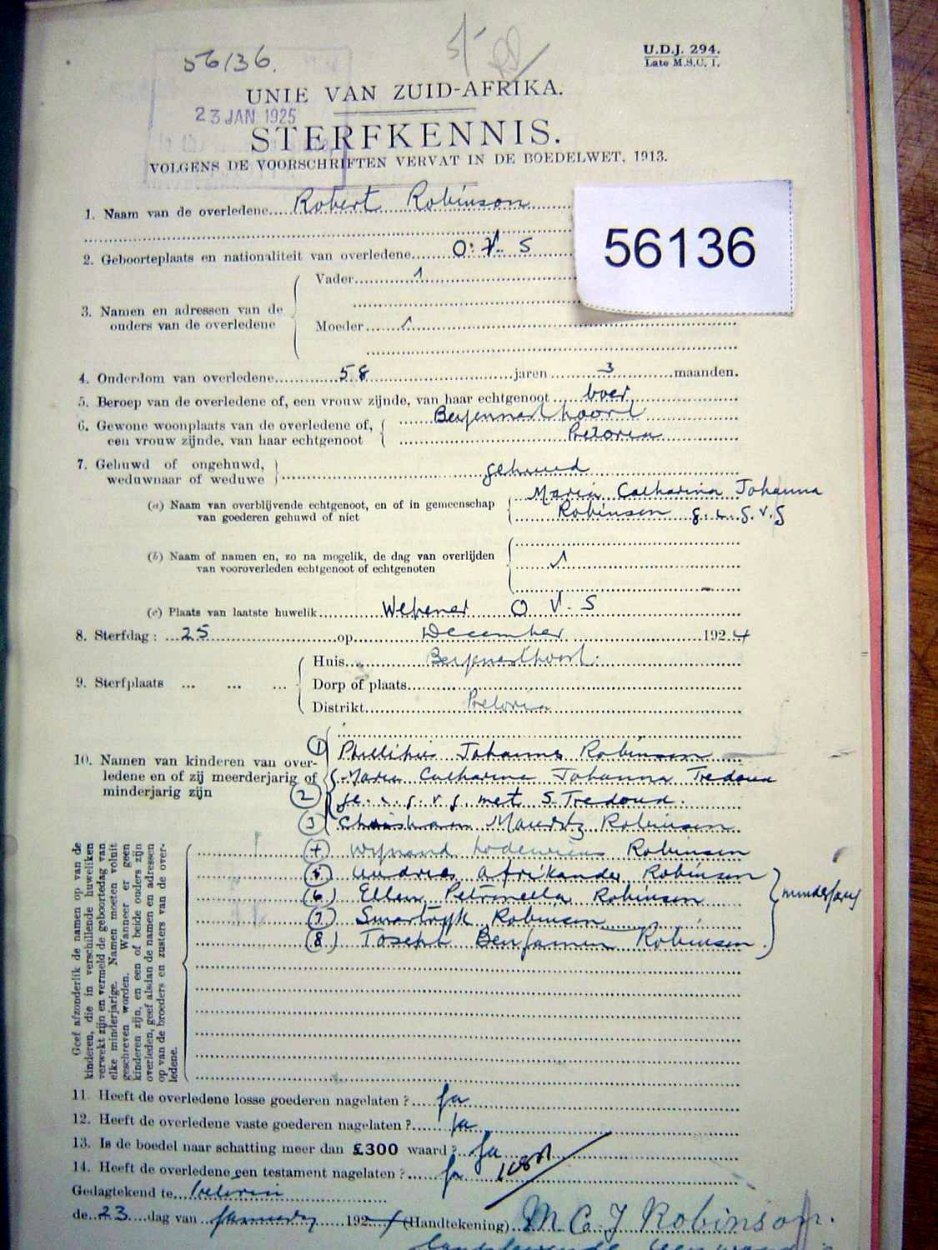 56136.
U.D.J. 294.
Late M.S.C. 1.
UNIE VAN ZUID-AFRIKA.
23 JAN 1925
STERFKENNIS.
VOLGENS DE VOORSCHRIFTEN VERVAT IN DE BOEDELWET, 1913.
1. Naam van de overledene Robert Robinson
56136
2. Geboorteplaats en nationaliteit van overledene O. V. S
3. Namen en adressen van de ouders van de overledene
Vader
Moeder
4. Onderdom van overledene 58 jaren 3 maanden.
5. Beroep van de overledene of, een vrouw zijnde, van haar echtgenoot boer
6. Gewone woonplaats van de overledene of,
een vrouw zijnde, van haar echtgenoot Pretoria
7. Gehuwd of ongehuwd, weduwnaar of weduwe gehuwd
(a) Naam van overblijvende echtgenoot, en of in gemeenschap Maria Catharina Johanna
van goederen gehuwd of niet Robinson g. i. g. v. g
(b) Naam of namen en, zo na mogelik, de dag van overlijden
van vooroverleden echtgenoot of echtgenoten
(c) Plaats van laatste huwelik Wepener O V. S
8. Sterfdag: 25 op December 1924
9. Sterfplaats ... ... ...
Huis
Dorp of plaats
Distrikt Pretoria
10. Namen van kinderen van over-
ledene en of zij meerderjarig of
minderjarig zijn
(1) Phillipus Johannes Robinson
(2) Maria Catharina Johanna Tredoux
ge. i. g. v. g met S. Tredoux.
(3) Mauritz Robinson
(4) Wynand Lodewicus Robinson
(5) Andries Afrikander Robinson
(6) Ellen Petronella Robinson
(7) Robinson
(8) Joseph Benjamin Robinson
minderjarig
Geef afzonderlik de namen op van de
kinderen, die in verschillende huweliken
verwekt zijn en vermeld de geboortedag van
elke minderjarige. Namen moeten voluit
geschreven worden. Wanneer er geen
kinderen zijn, en een of beide ouders zijn
overleden, geef alsdan de namen en adressen
op van de broeders en zusters van de over-
ledene.
11. Heeft de overledene losse goederen nagelaten? Ja
12. Heeft de overledene vaste goederen nagelaten? Ja
13. Is de boedel naar schatting meer dan £300 waard? Ja
14. Heeft de overledene een testament nagelaten? Ja
Gedagtekend te Pretoria
de 23 dag van January 192 (Handtekening) M C J Robinson.